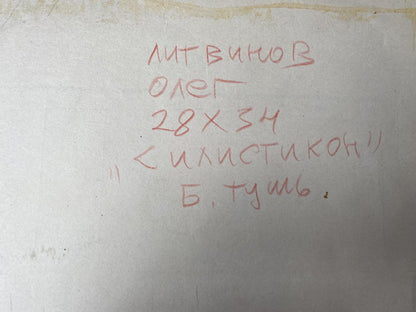 ЛИТВИНОВ
ОЛЕГ
28 X 34
„СИЛИСТИКОН”
Б. ТУШЬ.